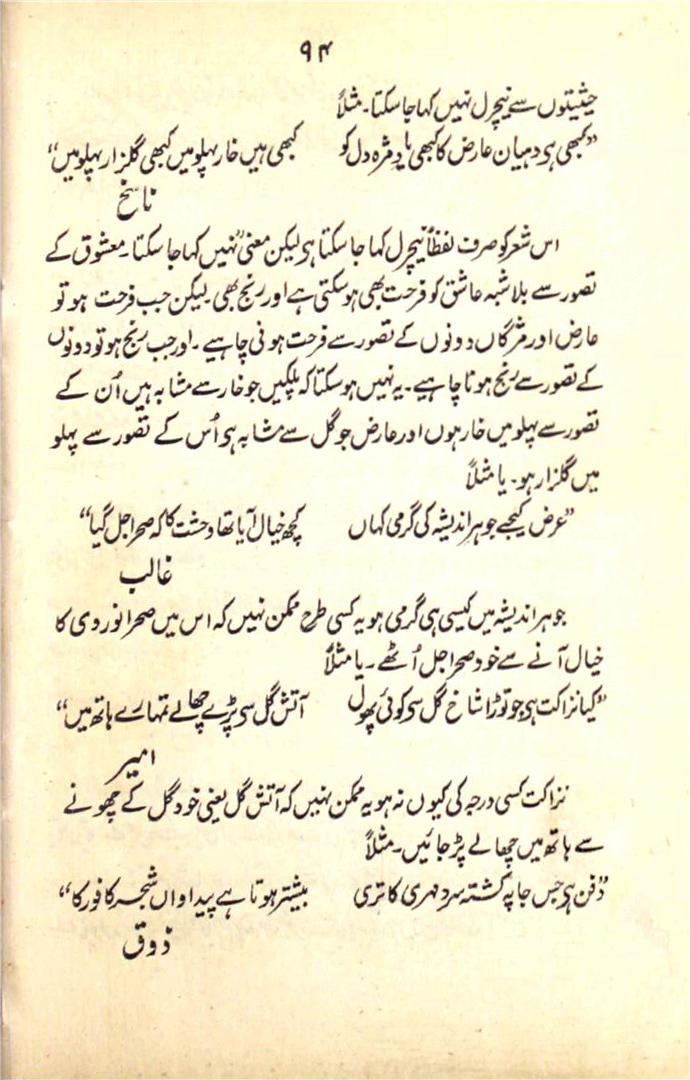 ۹۴
حیثیتوں سے نیچرل نہیں کہا جا سکتا۔ مثلاً
”کبھی ہی دہیان عارض کا کبھی یادِ مژہ دل کو کبھی ہیں خار پہلو میں کبھی گلزار پہلو میں“
ناسخ
اس شعر کو صرف لفظاً نیچرل کہا جا سکتا ہی لیکن معنیً نہیں کہا جا سکتا۔ معشوق کے
تصور سے بلا شبہ عاشق کو فرحت بھی ہو سکتی ہے اور رنج بھی۔ لیکن جب فرحت ہو تو
عارض اور مژگاں دونوں کے تصور سے فرحت ہونی چاہیے۔ اور جب رنج ہو تو دونوں
کے تصور سے رنج ہونا چاہیے۔ یہ نہیں ہو سکتا کہ پلکیں جو خار سے مشابہ ہیں اُن کے
تصور سے پہلو میں خار ہوں اور عارض جو گل سے مشابہ ہی اُس کے تصور سے پہلو
میں گلزار ہو۔ یا مثلاً
”عرض کیجے جوہر اندیشہ کی گرمی کہاں کچھ خیال آیا تھا وحشت کا کہ صحرا جل گیا“
غالب
جوہر اندیشہ میں کیسی ہی گرمی ہو یہ کسی طرح ممکن نہیں کہ اس میں صحرا نوردی کا
خیال آنے سے خود صحرا جل اُٹھے۔ یا مثلاً
”کیا نزاکت ہی جو توڑا شاخ گل سی کوئی پھول آتش گل سی پڑے چھالے تمہارے ہاتھ میں“
امیر
نزاکت کسی درجہ کی کیوں نہ ہو یہ ممکن نہیں کہ آتش گل یعنی خود گل کے چھونے
سے ہاتھ میں چھالے پڑ جائیں۔ مثلاً
”دفن ہی جس جا پہ کشتہ سرد مہری کا تری بیشتر ہوتا ہے پیدا واں شجر کافور کا“
ذوق